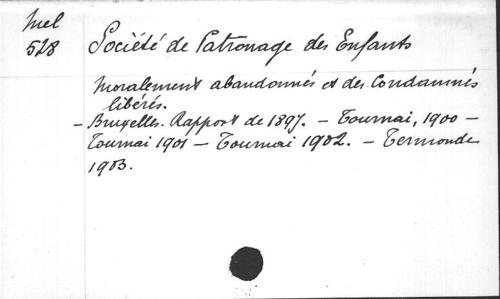 Mel
528
Société de Patronage des Enfants
moralement abandonnés et des Condamnés
libérés.
- Bruxelles. Rapport de 1897. - Tournai, 1900 -
Tournai 1901 - Tournai 1902. - Termonde
1903.